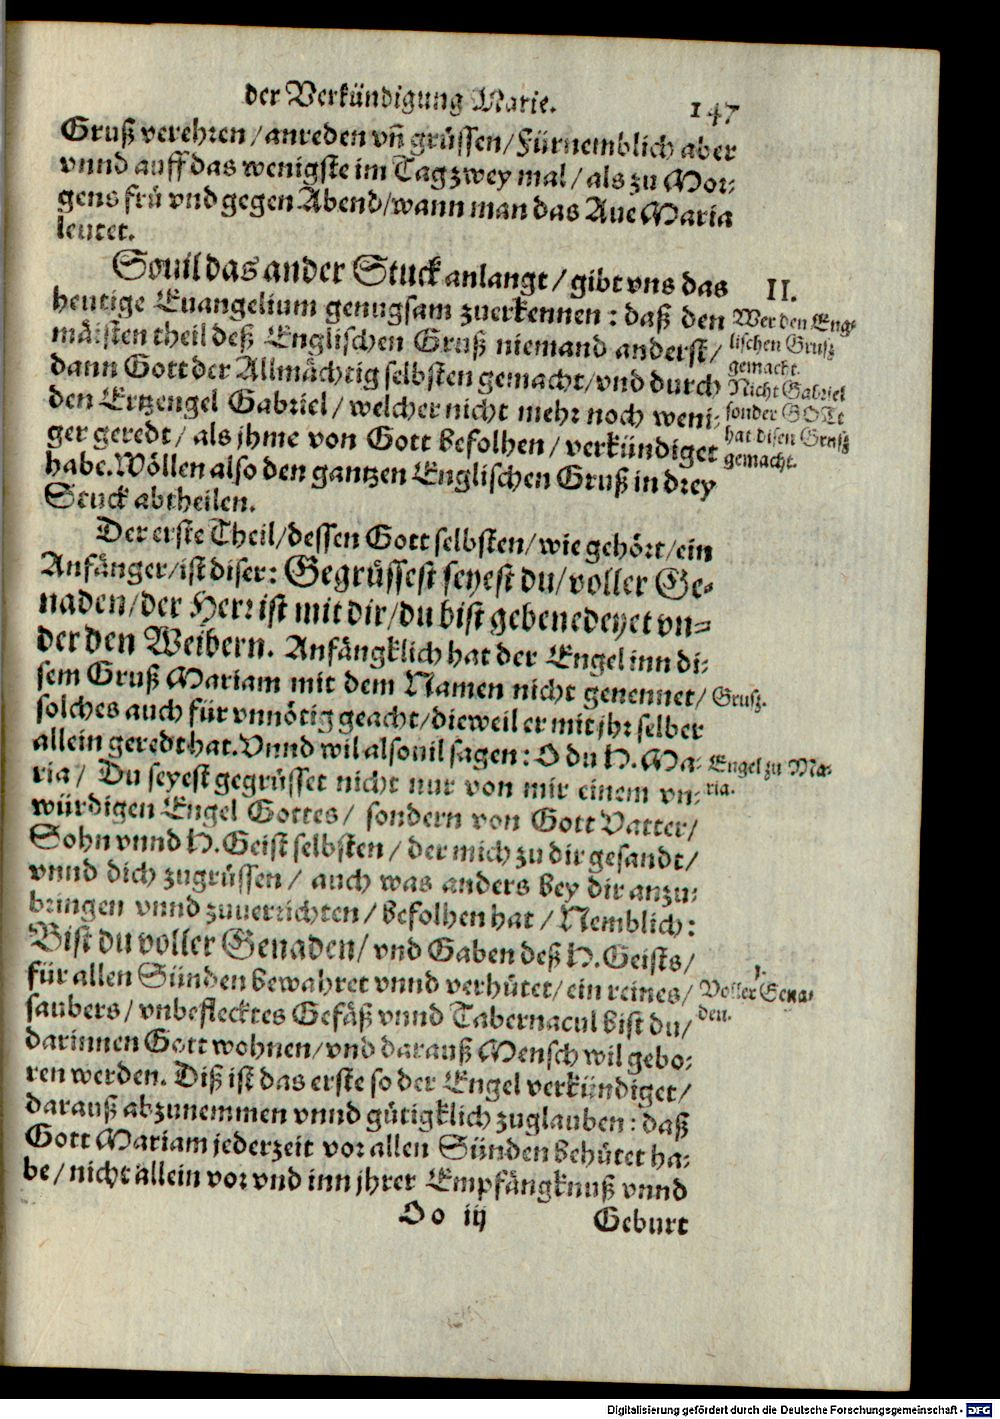 der Verkündigung Marie. 147
Gruß verehren / anreden vñ grüssen / Fürnemblich aber
vnnd auff das wenigste im Tag zwey mal / als zu Mor-
gens frü vnd gegen Abend / wann man das Aue Maria
leutet.
Souil das ander Stuck anlangt / gibt vns das
heutige Euangelium genugsam zuerkennen : daß den
mäisten theil deß Englischen Gruß niemand anderst /
dann Gott der Allmächtig selbsten gemacht / vnd durch
den Ertzengel Gabriel / welcher nicht mehr noch weni-
ger geredt / als jhme von Gott befolhen / verkündiget
habe. Wöllen also den gantzen Englischen Gruß in drey
Stuck abtheilen.
II.
Wer den Eng-
lischen Gruß
gemacht.
Nicht Gabriel
sonder GOTt
hat disen Gruß
gemacht.
Der erste Theil / dessen Gott selbsten / wie gehört / ein
Anfänger / ist diser : Gegrüssest seyest du / voller Ge-
naden / der Herr ist mit dir / du bist gebenedeyet vn-
der den Weibern. Anfängklich hat der Engel inn di-
sem Gruß Mariam mit dem Namen nicht genennet /
solches auch für vnnötig geacht / dieweil er mit jhr selber
allein geredt hat. Vnnd wil alsouil sagen : O du H. Ma-
ria / Du seyest gegrüsset nicht nur von mir einem vn-
würdigen Engel Gottes / sondern von Gott Vatter /
Sohn vnnd H. Geist selbsten / der mich zu dir gesandt /
vnnd dich zugrüssen / auch was anders bey dir anzu-
bringen vnnd zuuerrichten / befolhen hat / Nemblich :
Bist du voller Genaden / vnd Gaben deß H. Geists /
für allen Sünden bewahret vnnd verhütet / ein reines /
saubers / vnbeflecktes Gefäß vnnd Tabernacul bist du /
darinnen Gott wohnen / vnd darauß Mensch wil gebo-
ren werden. Diß ist das erste so der Engel verkündiget /
darauß abzunemmen vnnd gütigklich zuglauben : daß
Gott Mariam jederzeit vor allen Sünden behütet ha-
be / nicht allein vor vnd inn jhrer Empfängknuß vnnd
Gruß.
Engel zu Ma-
ria.
1.
Voller Gena-
den.
Oo iij Geburt
Digitalisierung gefördert durch die Deutsche Forschungsgemeinschaft - DFG